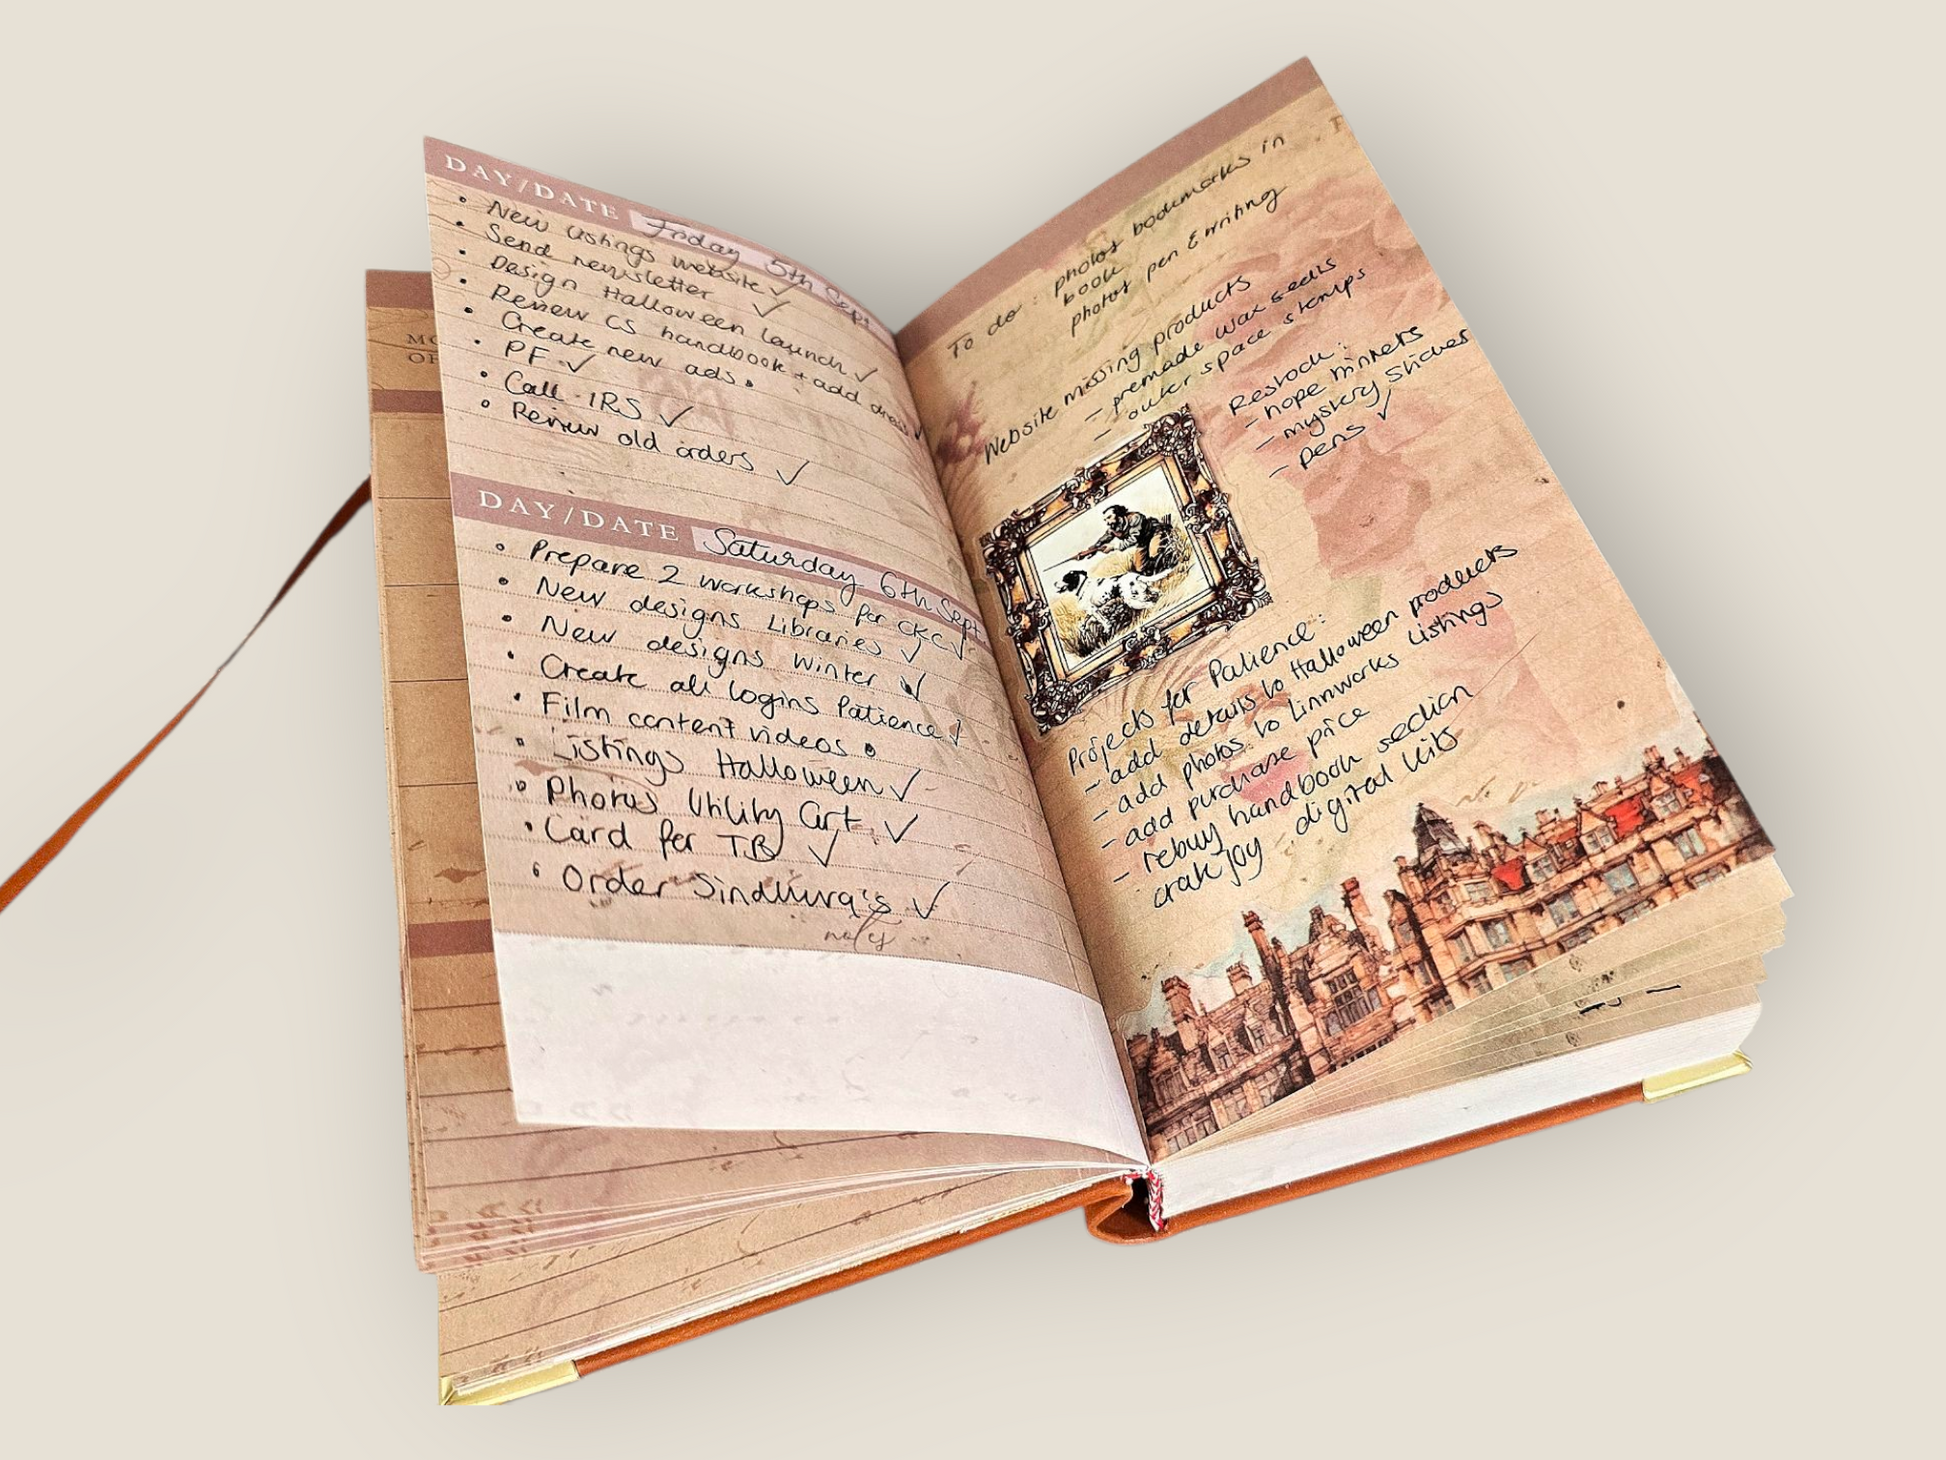 DAY/DATE Friday 5th Sept
• New listings website ✓
• Send newsletter ✓
• Design Halloween launch ✓
• Review CS handbook + add dress ✓
• Create new ads •
• PF ✓
• Call IRS ✓
• Review old orders ✓
DAY/DATE Saturday 6th Sept
• Prepare 2 workshops for CKC ✓
• New designs Libraries ✓
• New designs Winter ✓
• Create all logins Patience ✓
• Film content videos •
• Listings Halloween ✓
• Photos Utility Cart ✓
• Card for TB ✓
• Order Sindhura's ✓
notes
To do: photos bookmarks in
book
photos pen & writing
Website missing products
- premade wax seals
- outer space stamps
Restock:
- nope minkets
- mystery sticker
- pens ✓
Projects for Patience:
- add details to Halloween products
- add photos to Linnworks listings
- add purchase price
- rebuy handbook section
craft joy - digital kits